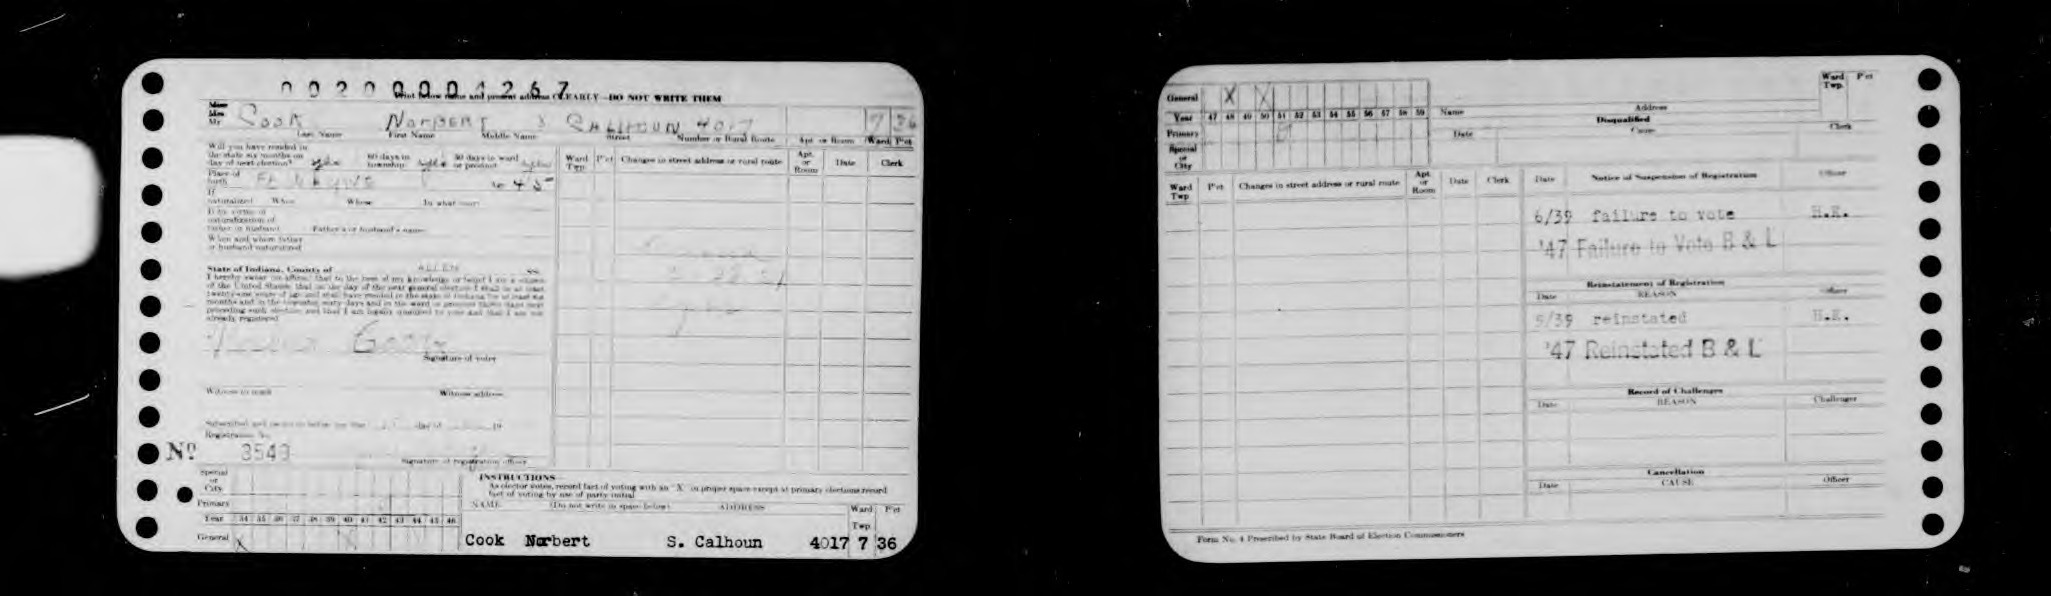 00200001267
Print below name and present address CLEARLY—DO NOT WRITE THEM
Miss
Mrs
Mr Cook Norbert S Calhoun 4017 7 36
Last Name First Name Middle Name Street Number or Rural Route Apt or Room Ward P'ct
Will you have resided in
the state six months on
day of next election? yes 60 days in township yes 30 days in ward or precinct yes
Ward Twp. P'ct Changes in street address or rural route Apt. or Room Date Clerk
Place of
birth Ft Wayne
If
naturalized When Where In what court
If by virtue of
naturalization of
father or husband Father's or husband's name
When and where father
or husband naturalized
State of Indiana, County of ALLEN ss.
I hereby swear (or affirm) that to the best of my knowledge or belief I am a citizen
of the United States, that on the day of the next general election I shall be at least
twenty-one years of age and shall have resided in the state of Indiana for at least six
months and in the township sixty days and in the ward or precinct thirty days next
preceding such election and that I am legally qualified to vote and that I am not
already registered
Cook
Signature of voter
Witness to mark Witness address
Subscribed and sworn to before me this day of 19
Registration No.
No 3543
Signature of registration officer
Special
or
City
Primary
Year 34 35 36 37 38 39 40 41 42 43 44 45 46
General X X
INSTRUCTIONS—
As elector votes, record fact of voting with an "X" in proper space except at primary elections record
fact of voting by use of party initial
NAME (Do not write in space below) ADDRESS Ward Twp. P'ct
Cook Norbert S. Calhoun 4017 7 36
General X X
Year 47 48 49 50 51 52 53 54 55 56 57 58 59
Primary
Special
or
City
Name Address Ward Twp. P'ct
Disqualified
Date Cause Clerk
Ward Twp P'ct Changes in street address or rural route Apt. or Room Date Clerk
Date Notice of Suspension of Registration Officer
6/39 failure to vote H.K.
'47 Failure to Vote B & L
Reinstatement of Registration
Date REASON Officer
9/39 reinstated H.K.
'47 Reinstated B & L
Record of Challenges
Date REASON Challenger
Cancellation
Date CAUSE Officer
Form No. 4 Prescribed by State Board of Election Commissioners